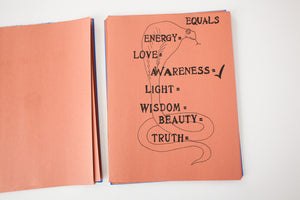 EQUALS
ENERGY=
LOVE=
AWARENESS=✓
LIGHT=
WISDOM=
BEAUTY=
TRUTH=